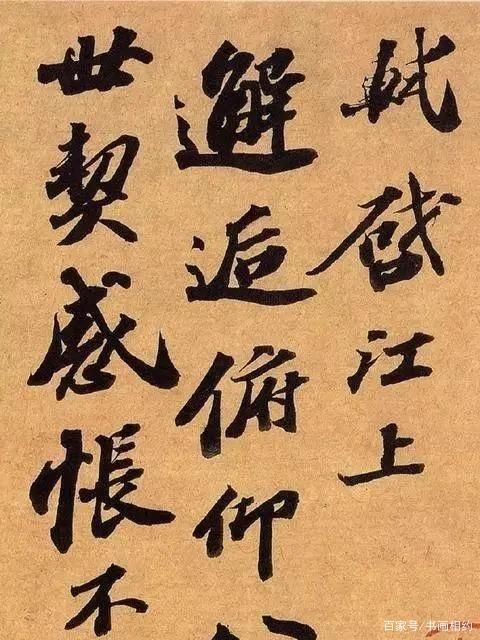 轼启江上
邂逅俯仰八
世契感怅不
百家号/书画相约